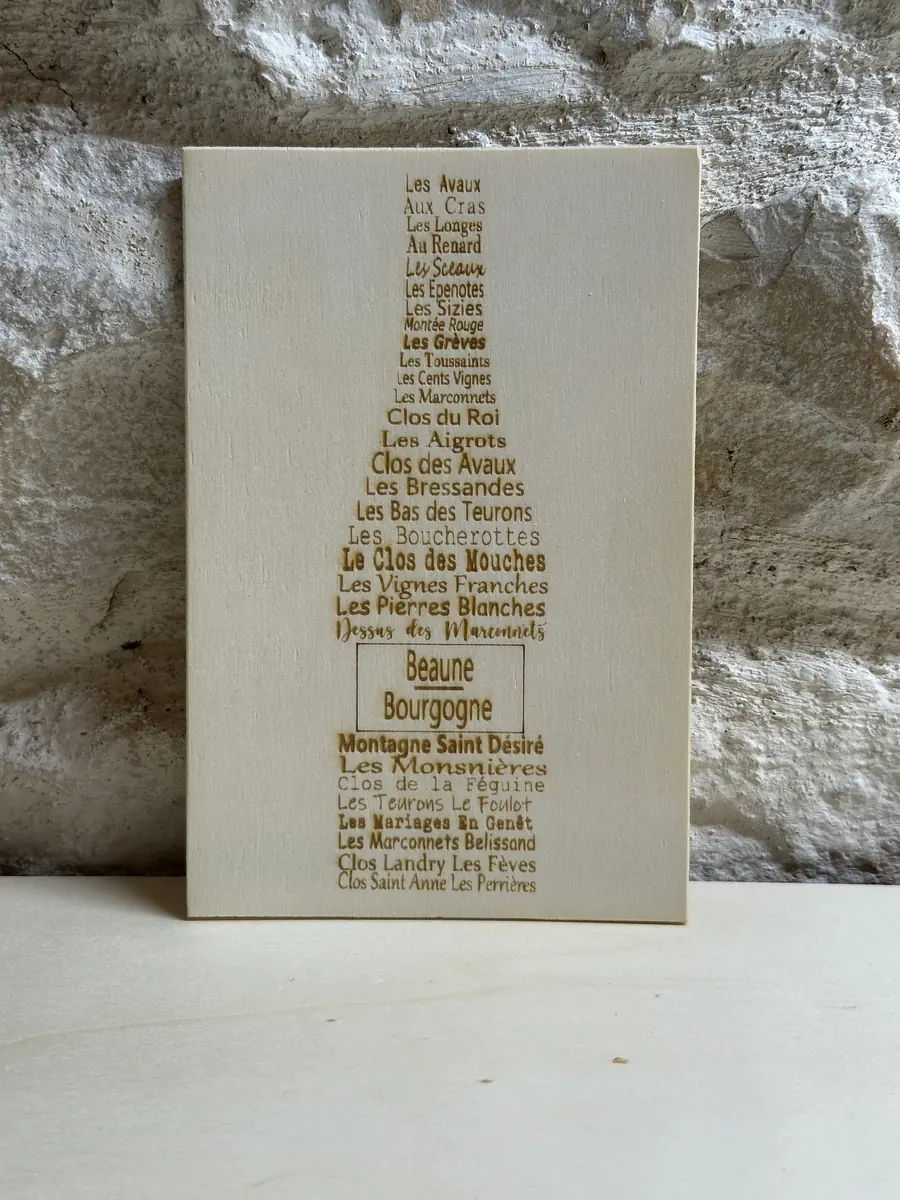 Les Avaux
Aux Cras
Les Longes
Au Renard
Les Sceaux
Les Epenotes
Les Sizies
Montée Rouge
Les Grèves
Les Toussaints
Les Cents Vignes
Les Marconnets
Clos du Roi
Les Aigrots
Clos des Avaux
Les Bressandes
Les Bas des Teurons
Les Boucherottes
Le Clos des Mouches
Les Vignes Franches
Les Pierres Blanches
Dessus des Marconnets
Beaune
Bourgogne
Montagne Saint Désiré
Les Monsnières
Clos de la Féguine
Les Teurons Le Foulot
Les Mariages En Genêt
Les Marconnets Belissand
Clos Landry Les Fèves
Clos Saint Anne Les Perrières